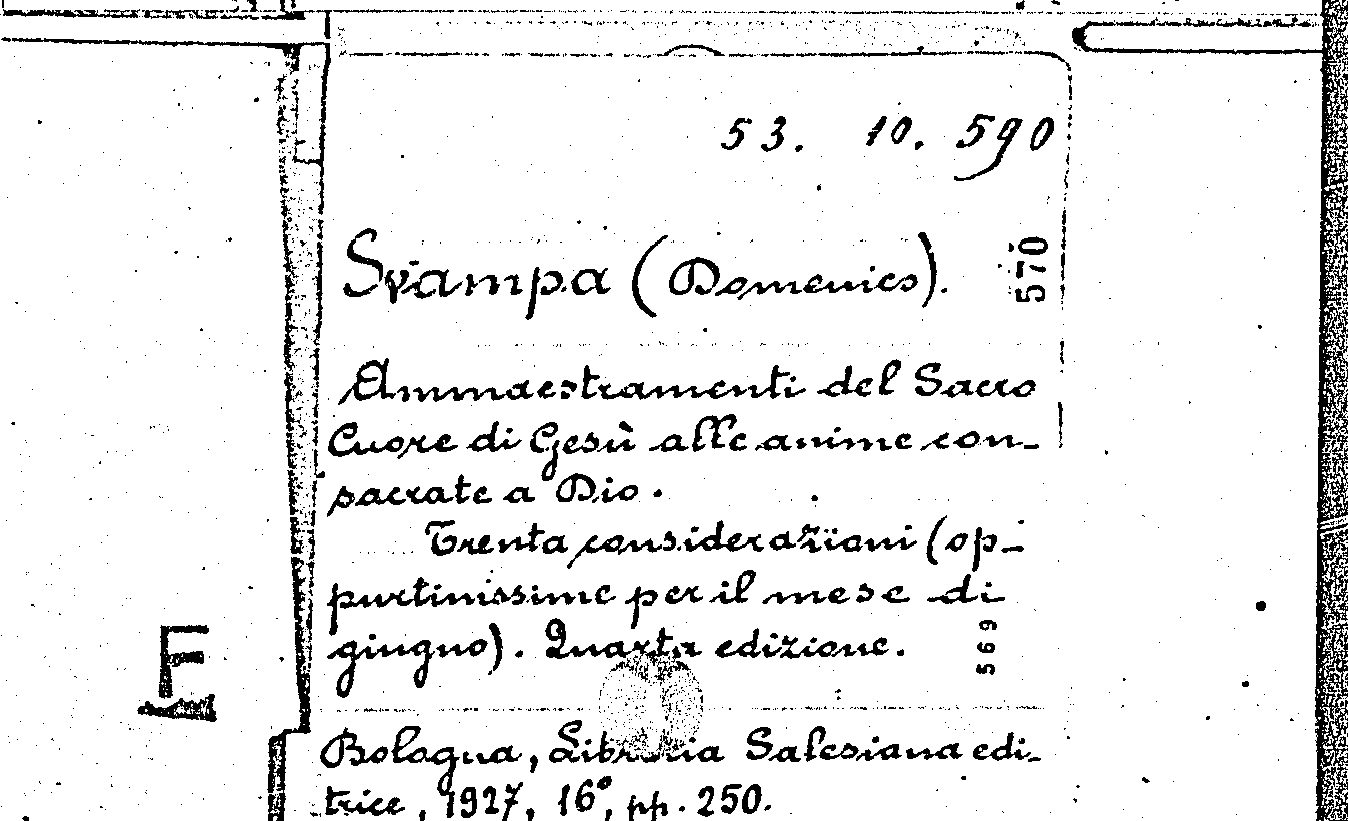 53. 10. 590
Svampa (Domenico).
570
Ammaestramenti del Sacro
Cuore di Gesù alle anime con-
sacrate a Dio.
Trenta considerazioni (op-
purtinissime per il mese di
giugno). Quarta edizione.
569
F
Bologna, Libreria Salesiana edi-
trice, 1927, 16°, pp. 250.